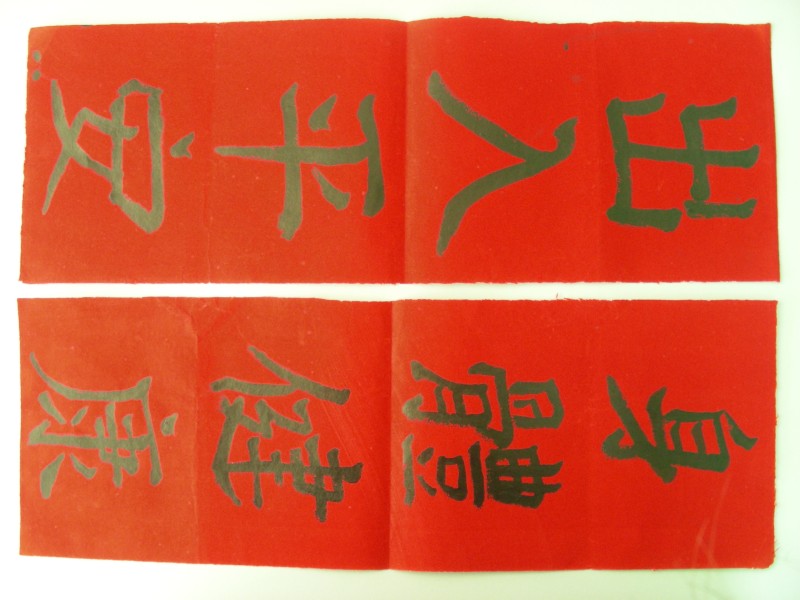 身體健康
出入平安